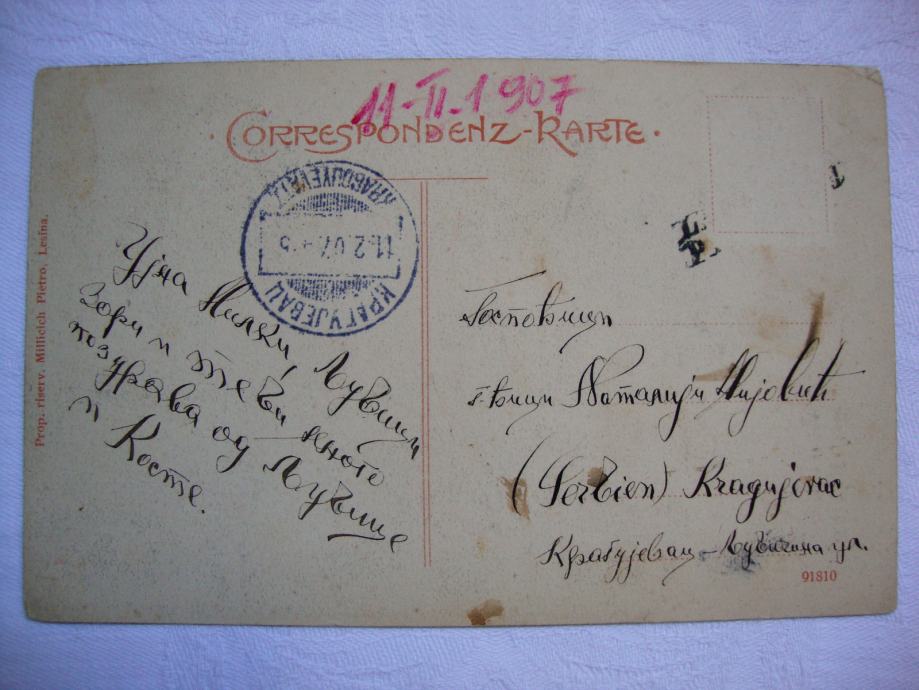 11-II.1907
CORRESPONDENZ-KARTE.
KRAGOUYEVATZ
11.2.07
КРАГУЈЕВАЦ
Ујна Милки, Љубици
Зори и теби много
поздрава од Љубице
и Косте.
Госпођици
г-ђици Наталији
(Serbien) Kragujevac
Крагујевац - ул.
Prop. riserv. Millicich Pietro, Lesina.
91810